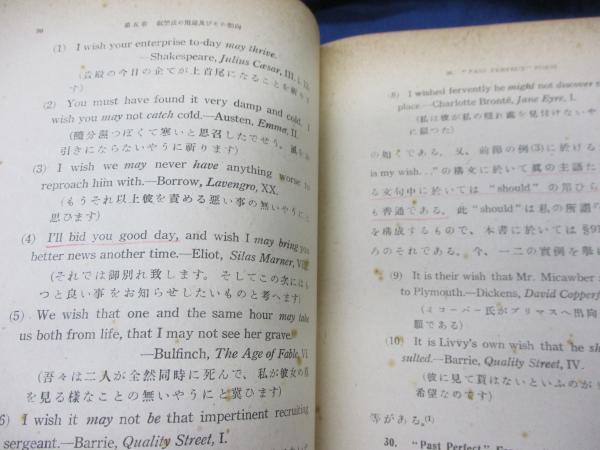 90 第五章 叙想法の用途及びその動向
(1) I wish your enterprise to-day may thrive.
—Shakespeare, Julius Cæsar, III. i. 13.
(貴殿の今日の企てが上首尾になることを祈りま
す)
(2) You must have found it very damp and cold. I
wish you may not catch cold.—Austen, Emma, II.
(隨分濕つぽくて寒いと思召したでせう。風を
引きにならないやうに祈ります)
(3) I wish we may never have anything worse to
reproach him with.—Borrow, Lavengro, XX.
(もうそれ以上彼を責める悪い事の無いやうにと
思ひます)
(4) I'll bid you good day, and wish I may bring you
better news another time.—Eliot, Silas Marner, VIII.
(それでは御別れ致します。そしてこの次にはも
つと良い事をお知らせしたいものと考へます)
(5) We wish that one and the same hour may take
us both from life, that I may not see her grave.
—Bulfinch, The Age of Fable, VI
(吾々は二人が全然同時に死んで、私が彼女の墓
を見る様なことの無いやうにと冀ひます)
6) I wish it may not be that impertinent recruiting
sergeant.—Barrie, Quality Street, I.
30. "PAST PERFECT" FORM
8) I wished fervently he might not discover
place.—Charlotte Brontë, Jane Eyre, I.
(私は彼が私の隠れ處を見付けないや
に願つた)
の如くである。又、前節の例(3)に於ける
is my wish..." の構文に於いて眞の主語た
る文句中に於いては "should" の用ひら
も普通である。此 "should" は私の所謂
を構成するもので、本書に於いては §91
ろのそれである。今、一二の實例を擧
(9) It is their wish that Mr. Micawber
to Plymouth.—Dickens, David Copperf
(ミコーバー氏がプリマスへ出向
願である)
(10) It is Livvy's own wish that he
sulted.—Barrie, Quality Street, IV.
(彼に見て貰はないといふのが
希望なのです)
等がある。(1)
30. "Past Perfect"